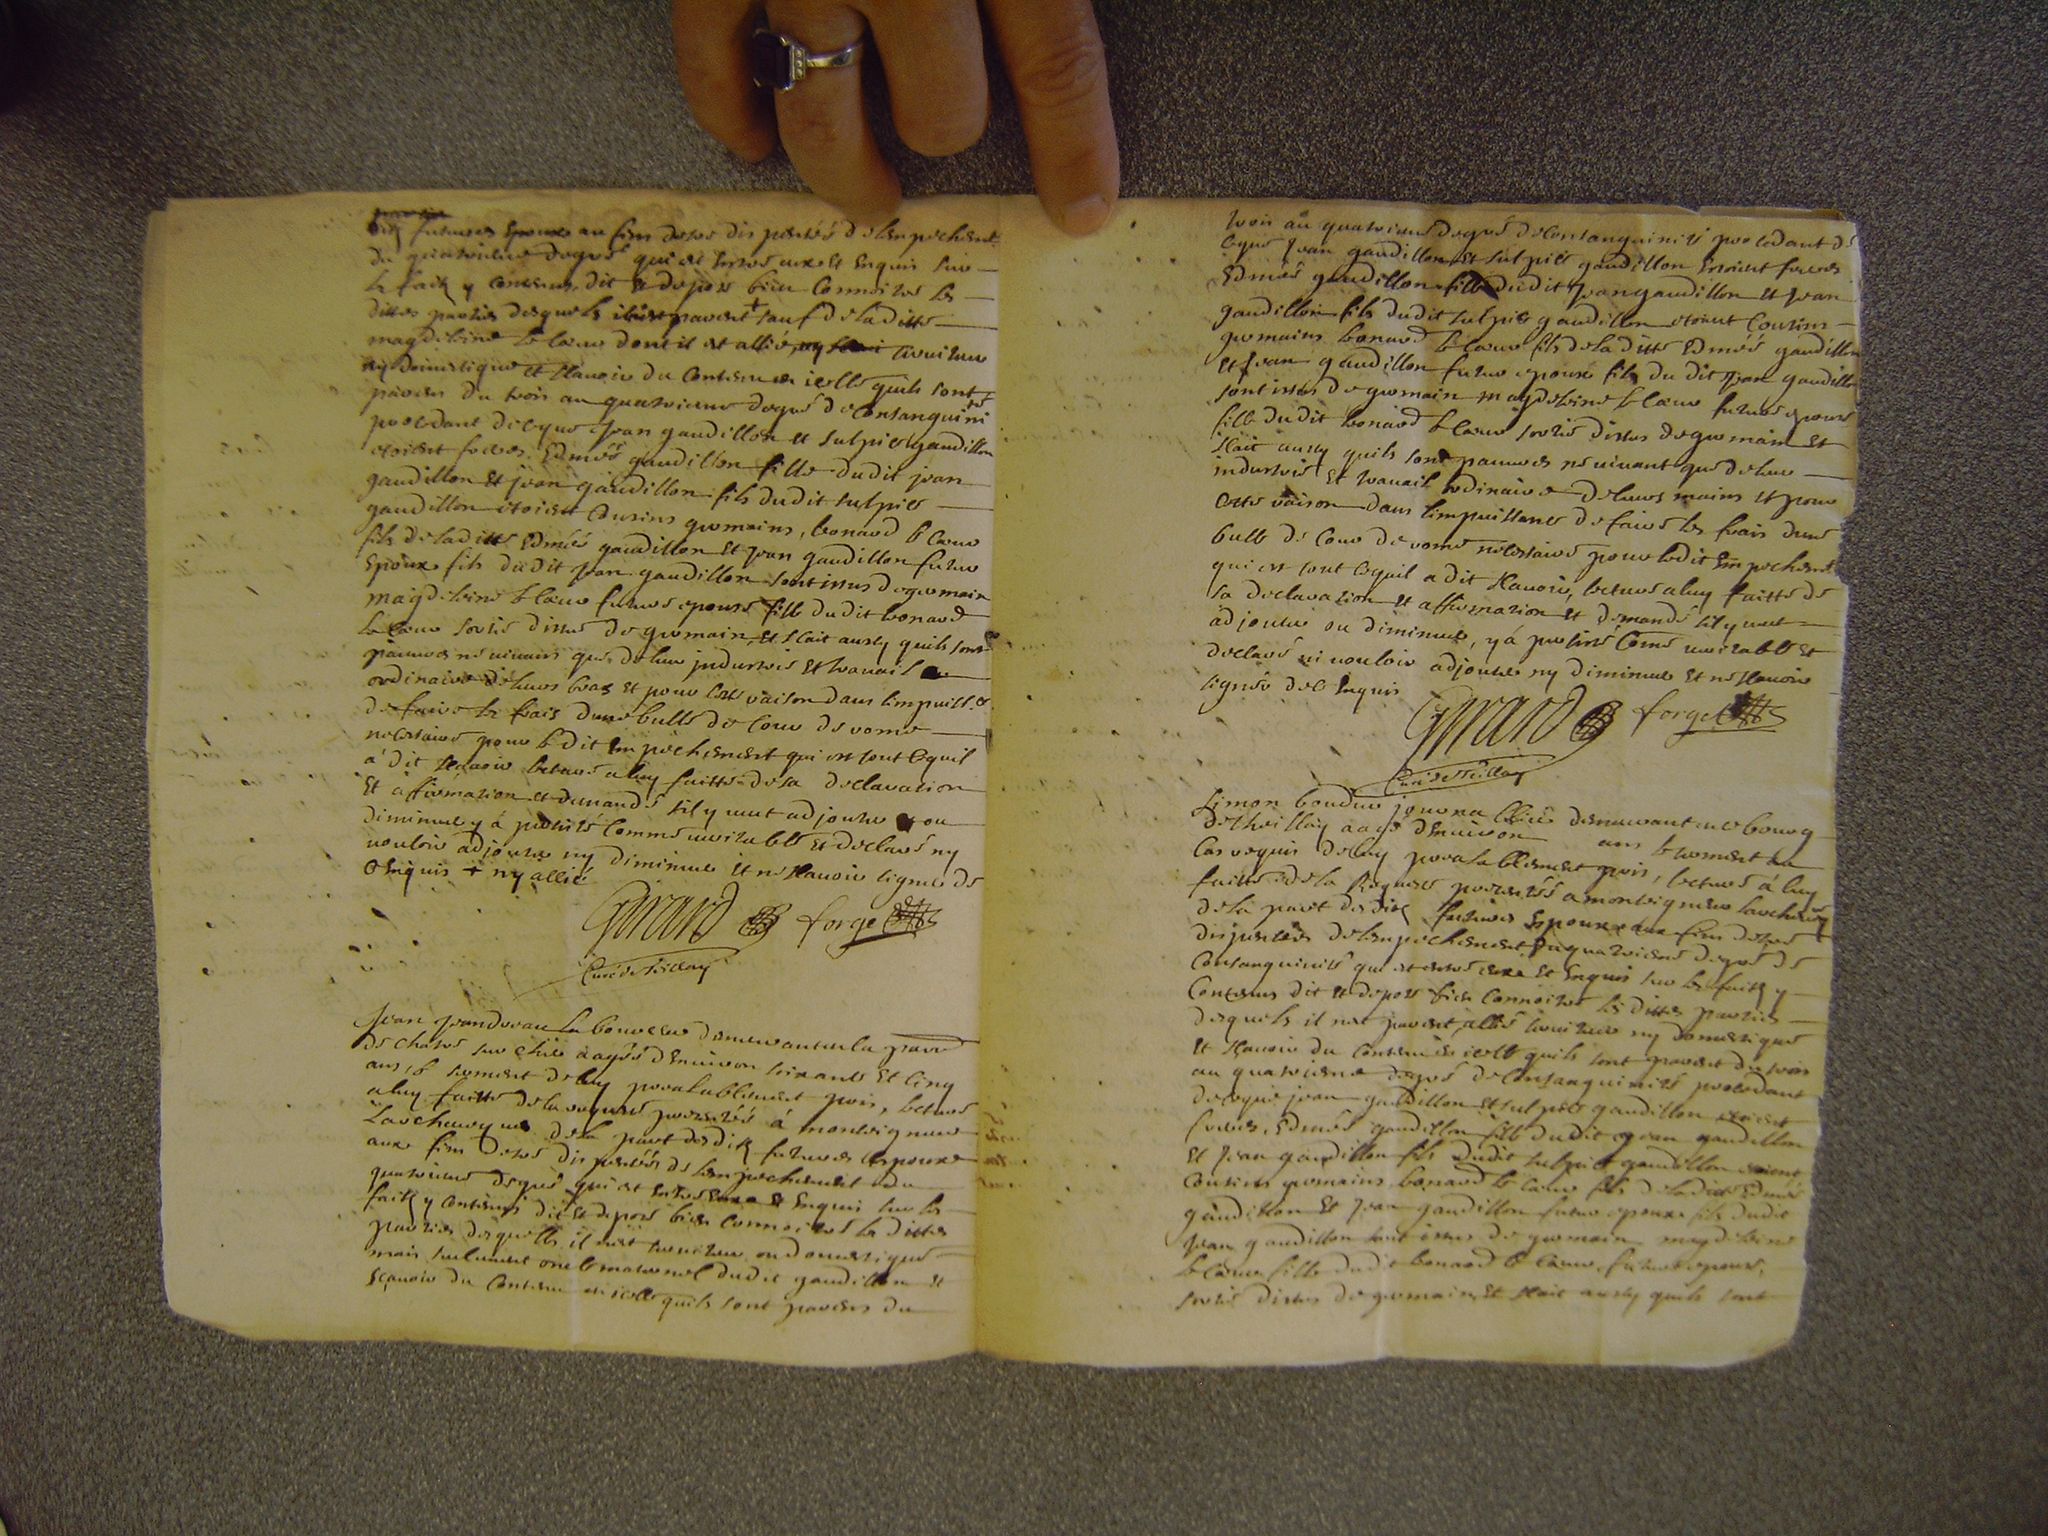 dits futures Epoux au fins destre dispensés de lempechent
du quatrieme degré qui est entre eux et Enquis sur
le faits y contenus, dit et depose bien Connoitre les
dittes parties desquels il nest parent + sauf de la ditte
magdeleine le Coeur dont il est allié, serviteur
ny Domestique et scavoir du Contenu en icelle quils sont
parens du trois au quatrieme degré de Consanguinité
procedant de ce que Jean gaudillon et sulpice gaudillon
etoient freres. Edmée gaudillon fille dudit jean
gaudillon et jean gaudillon fils dudit sulpice
gaudillon etoient Cousins germains, leonard le Coeur
fils de la ditte Edmée gaudillon et jean gaudillon futur
Epoux fils dudit jean gaudillon sont issus de germain
magdeleine le Coeur future epouse fille dudit leonard
le Coeur sortie dissus de germain, et scait aussy quils sont
pauvres ne vivans que de leur industrie et travail
ordinaire de leurs bras et pour cette raison dans limpuiss.ce
de faire les frais dune bulle de Cour de rome
necessaire pour le dit Empechement qui est tout ce quil
a dit scavoir lecture a luy faitte de sa declaration
et affirmation et demandé sil y veut adjouter ou
diminuer y a persisté comme veritable et declaré ny
vouloir adjouter ny diminuer et ne scavoir signer de
ce Enquis + ny allié
Girard forge
Curé de theillay
Jean Jandreau laboureur demeurant en la parr
de chatre sur cher aagée denviron soixante et cinq
ans, le serment de luy prealablement pris, lecture
a luy faitte de la requete presentée à monseigneur
Larcheveque de la part desdits futures epoux
aux fins destre dispensés de lempechement du
quatrieme degré qui est entre eux et Enquis sur les
faits y contenus dit et depose bien connoitre les dittes
parties desquelles il nest serviteur ou domestique
mais seulement oncle maternel dudit gaudillon et
scavoir du Contenu en icelle quils sont parens du
trois au quatrieme degré de Consanguinité procedant de
ce que Jean gaudillon et sulpice gaudillon etoient freres
Edmée gaudillon fille dudit jean gaudillon et jean
gaudillon fils dudit sulpice gaudillon etoient Cousins
germains leonard le Coeur fils de la ditte Edmée gaudillon
et Jean gaudillon futur epoux fils du dit Jean gaudillon
sont issus de germain magdeleine le Coeur future epouse
fille dudit leonard le Coeur sortie dissus de germain et
scait aussy quils sont pauvres ne vivant que de leur
industrie et travail ordinaire de leurs mains et pour
cette raison dans limpuissance de faire les frais dune
bulle de Cour de rome necessaire pour ledit Empechent
qui est tout ce quil a dit scavoir, lecture a luy faitte de
sa declaration et affirmation et demandé sil y veut
adjouter ou diminuer, y a persisté Come veritable et
declaré ni vouloir adjouter ny diminuer et ne scavoir
signer de ce Enquis
Girard forge
Curé de theillay
Simon boudin journallier demeurant en ce bourg
de theillay aagé denviron ans le serment au
Cas requis de luy prealablement pris, lecture à luy
faitte de la Requete presentée a monseigneur larcheveq
de la part desdits futures Epoux aux fins destre
dispensées de lempechement du quatrieme degré de
Consanguinité qui est entre eux et Enquis sur les faits y
Contenus dit et depose bien Connoitre les dittes parties
desquels il nest parent, allié serviteur ny domestique
et scavoir du Contenu en icelle quils sont parent du trois
au quatrieme degré de Consanguinité procedant
de ce que jean gaudillon et sulpice gaudillon etoient
freres, Edmée gaudillon fille dudit jean gaudillon
et Jean gaudillon fils dudit sulpice gaudillon etoient
Cousins germains, leonard le Coeur fils de la ditte Edmée
gaudillon et Jean gaudillon futur epoux fils dudit
Jean gaudillon sont issus de germain magdeleine
le Coeur fille dudit leonard le Coeur, future epouse,
sortie dissus de germain, et scait aussy quils sont